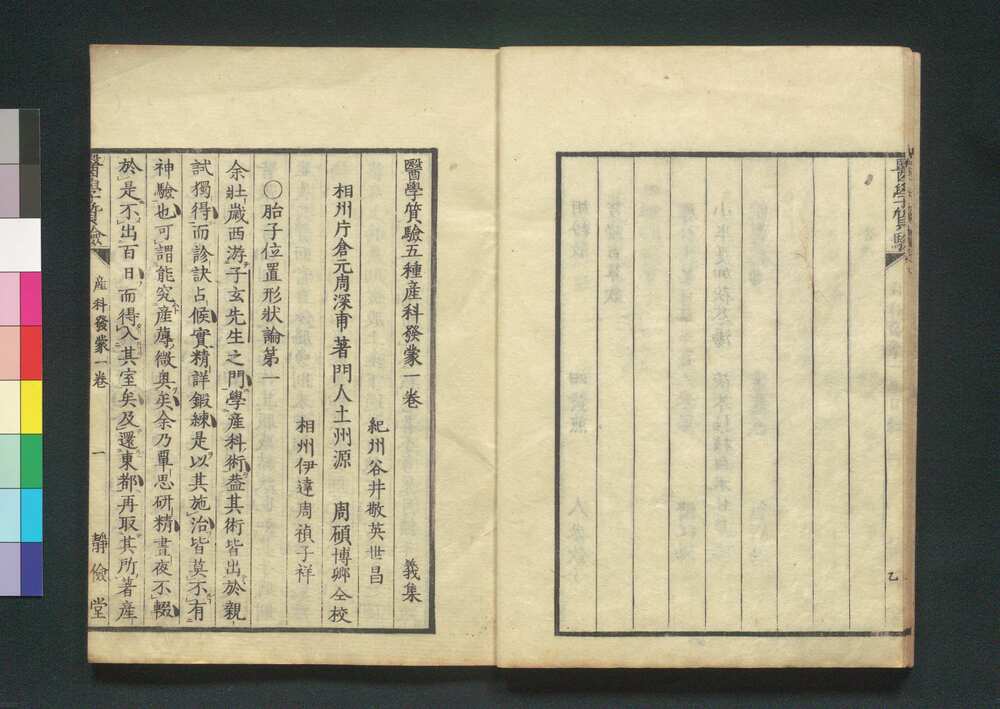 醫學質驗
乙
醫學質驗五種産科發蒙一卷 義集
紀州谷井敬英世昌
相州片倉元周深甫著門人土州源 周碩博卿仝校
相州伊達周禎子祥
〇胎子位置形狀論第一
余壯歳西游子玄先生之門學産科術葢其術皆出於親
試獨得而診訣占候實精詳鍛練是以其施治皆莫不有
神驗也可謂能究産蓐微奥矣余乃覃思研精晝夜不輟
於是不出百日而得入其室矣及還東都再取其所著産
醫學質驗 産科發蒙一卷 一 静儉堂